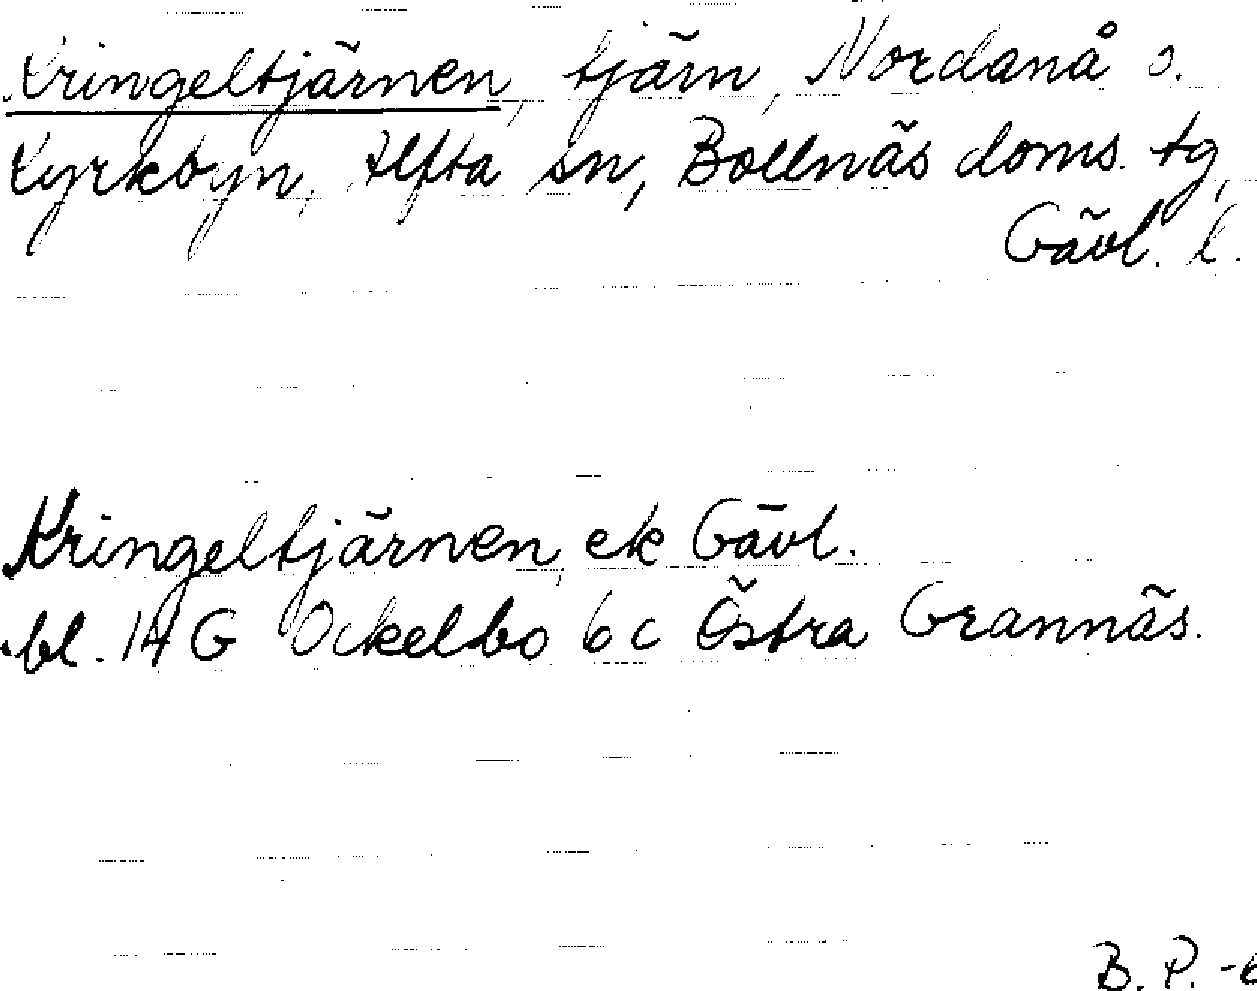 Kringeltjärnen, tjärn, Nordanå o.
Kyrkbyn, Alfta sn, Bollnäs doms. tg,
Gävl. l.
Kringeltjärnen, ek Gävl.
bl. 14 G Ockelbo 6 c Östra Grannäs.
B. P.